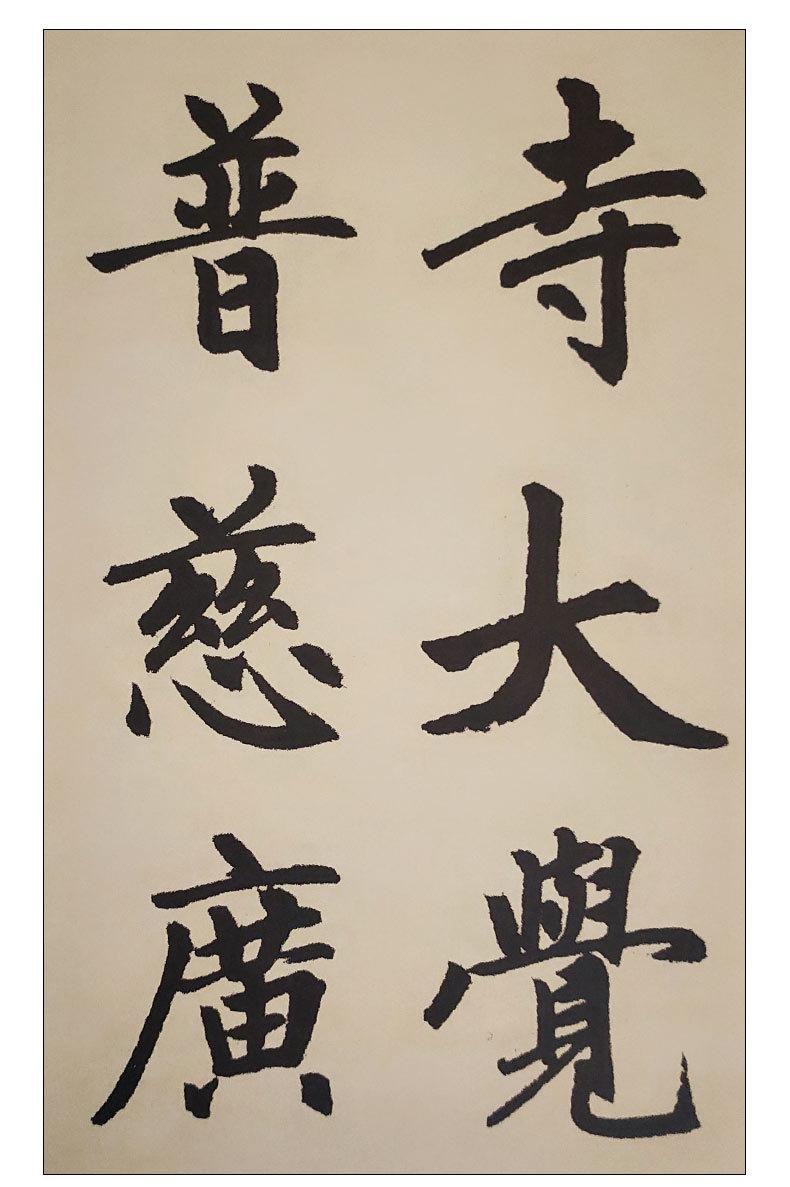 寺大覺
普慈廣